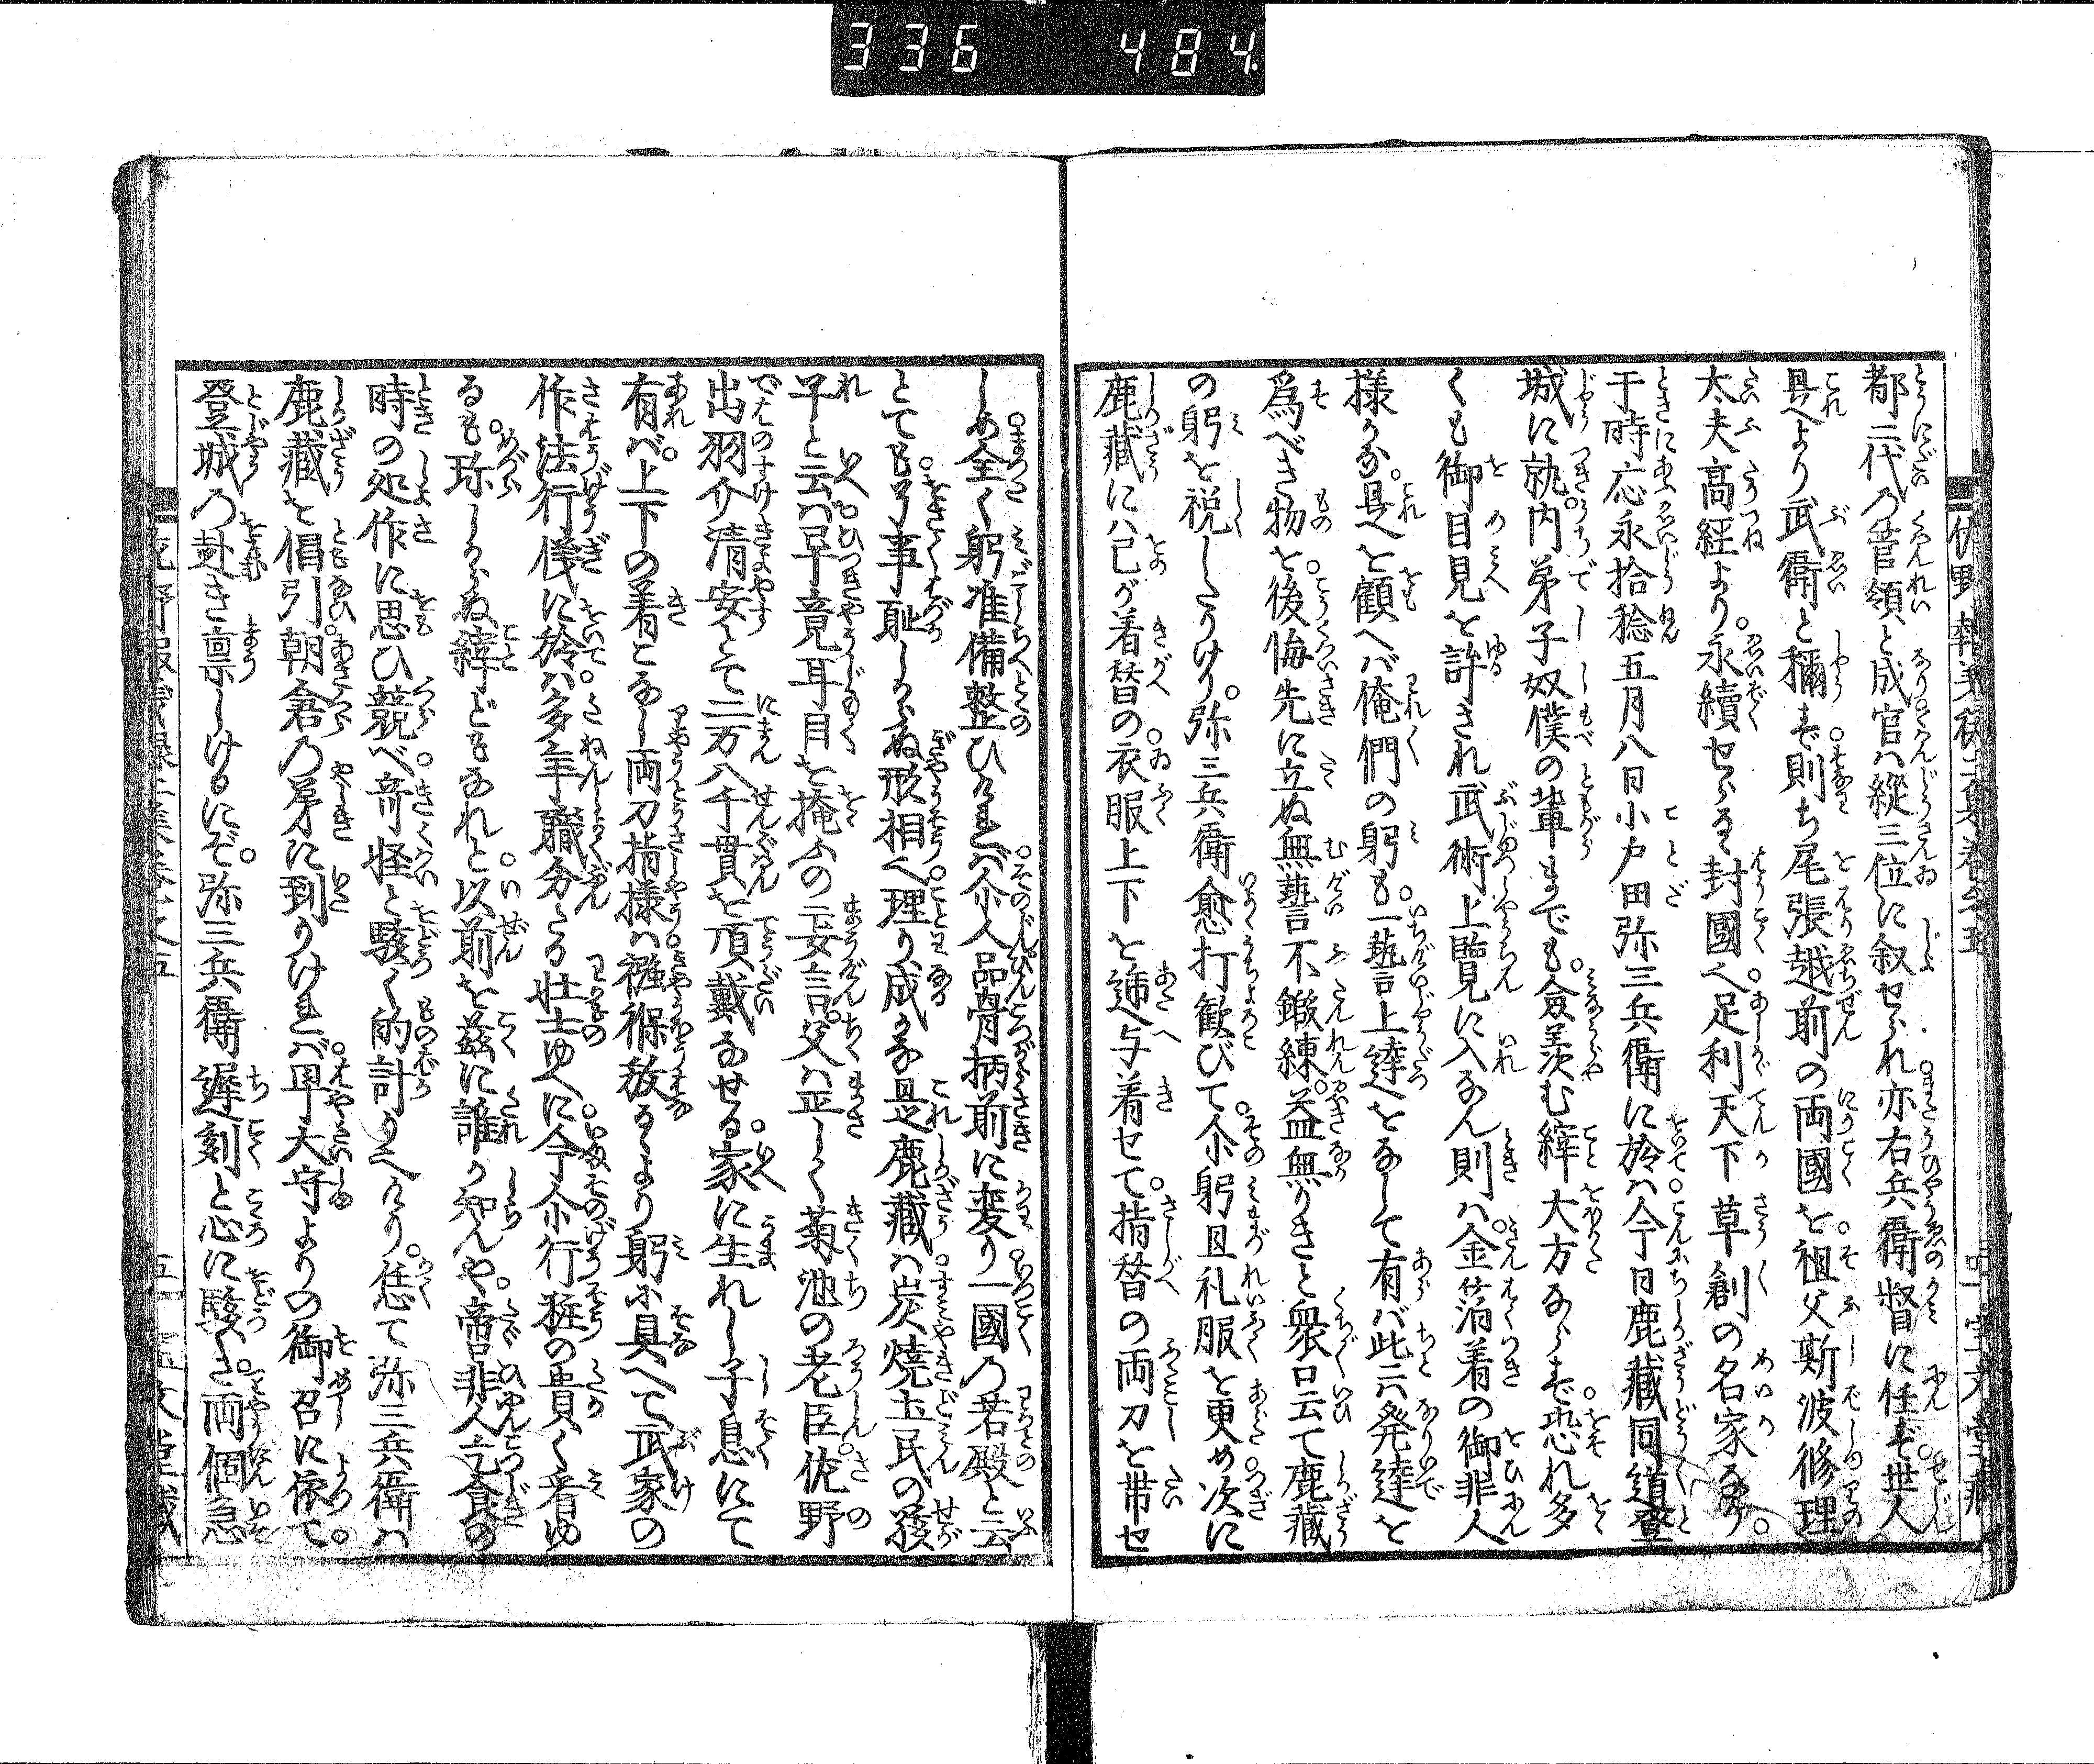 336 484
都二代の管領と成官ハ縦三位に叙せられ亦右兵衛督に任ず世人
是より武衛と稱ず則ち尾張越前の両國を祖父斯波修理
太夫高経より永續せらる封國へ足利天下草創の名家なり
于時応永拾稔五月八日小戸田弥三兵衛に於ハ今日鹿藏同道登
城に就内弟子奴僕の輩までも僉羨む縡大方ならず恐れ多
くも御目見を許され武術上覽に入なん則ハ金箔着の御非人
様かな是を顧へバ俺們の躬も一藝上達をなして有バ此ニハ発達を
為べき物を後悔先に立ぬ無藝不鍛練益無りきと衆口云て鹿藏
の躬を祝したりけり弥三兵衛愈打歓びて尒躬且礼服を更め次に
鹿藏にハ己が着替の衣服上下を逓与着せて指替の両刀を帯せ
しめ全く躬准備整ひけれバ尒人品骨柄前に変り一國の若殿と云
とても另事耻しからぬ形相へ理り成かな是鹿藏ハ炭焼土民の孩
子と云ハ早竟耳目を掩ふの妄言父ハ正しく菊池の老臣佐野
出羽介清安とて二万八千貫を頂戴なせる家に生れし子息にて
有バ上下の着こなし両刀指様ハ襁褓放るゝより躬に具へて武家の
作法行儀に於ハ多年職分たる壮士ゆへに今尒行粧の貴く着ゆ
るも珎しからぬ縡どもなれと以前を茲に誰か知んや啻非人乞食の
時の処作に思ひ競べ竒怪と駭く的計りへけり恁て弥三兵衛ハ
鹿藏を倡引朝倉の第に到りけれバ早大守よりの御召に依て
登城の赴き禀しけるにぞ弥三兵衛遅刻と心に駭くき両個急